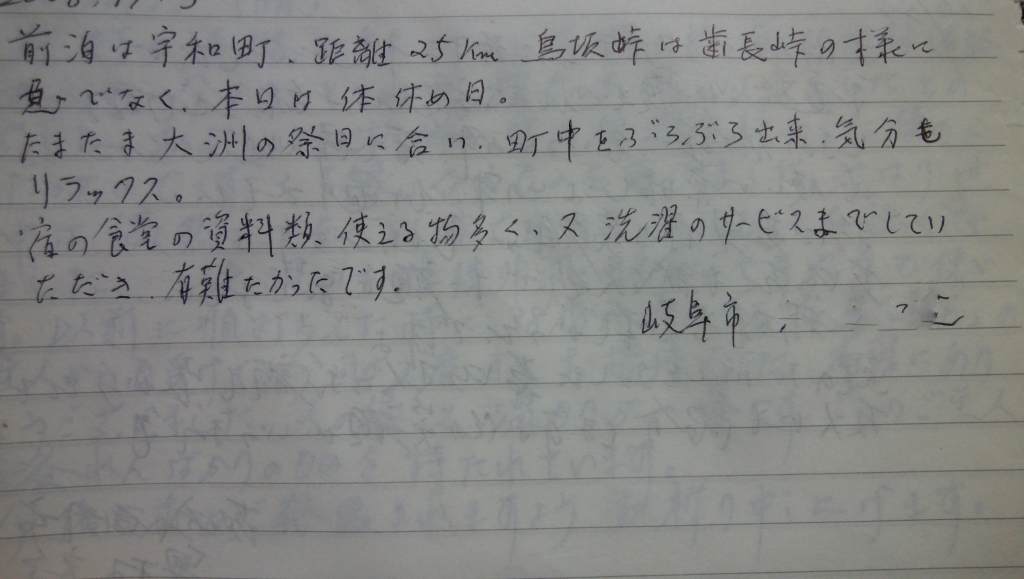 前泊は宇和町、距離25Km 鳥坂峠は歯長峠の様に
急でなく、本日は体休め日。
たまたま大洲の祭日に合い、町中をぶらぶら出来、気分も
リラックス。
宿の食堂の資料類、使える物多く、又洗濯のサービスまでしてい
ただき、有難たかったです。
岐阜市